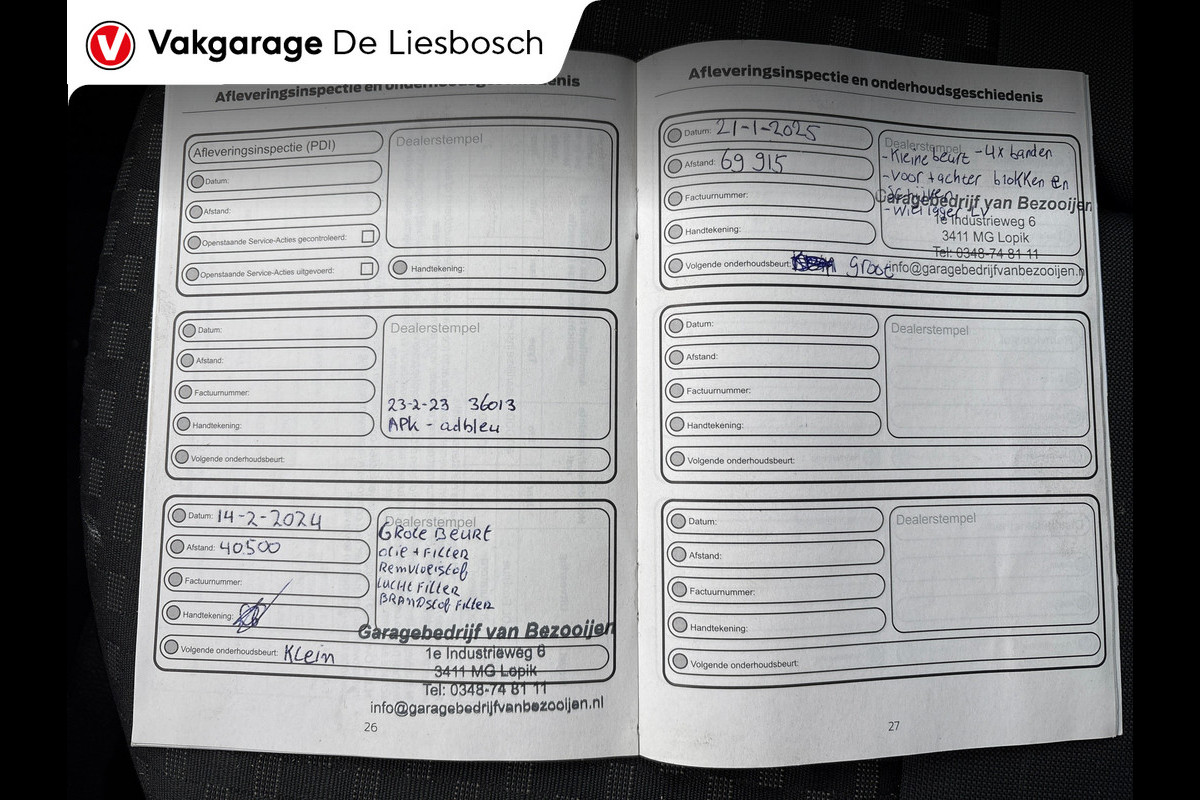 Vakgarage De Liesbosch
Afleveringsinspectie en onderhoudsgeschiedenis
Afleveringsinspectie (PDI)
Datum:
Afstand:
Openstaande Service-Acties gecontroleerd:
Openstaande Service-Acties uitgevoerd:
Dealerstempel
Handtekening:
Datum:
Afstand:
Factuurnummer:
Handtekening:
Volgende onderhoudsbeurt:
Dealerstempel
23-2-23 36013
APK - adbleu
Datum: 14-2-2024
Afstand: 40500
Factuurnummer:
Handtekening:
Volgende onderhoudsbeurt: Klein
Dealerstempel
GROTE BEURT
olie + FilTER
Remvloeistof
LUCHT FilTER
BRANDstof FilTER
Garagebedrijf van Bezooijen
1e Industrieweg 6
3411 MG Lopik
Tel: 0348-74 81 11
info@garagebedrijfvanbezooijen.nl
26
Afleveringsinspectie en onderhoudsgeschiedenis
Datum: 21-1-2025
Afstand: 69 915
Factuurnummer:
Handtekening:
Volgende onderhoudsbeurt: Groot
Dealerstempel
- Kleine beurt - 4x banden
- voor + achter blokken en
schijven
- wiellager LV
Garagebedrijf van Bezooijen
1e Industrieweg 6
3411 MG Lopik
Tel: 0348-74 81 11
info@garagebedrijfvanbezooijen.n
Datum:
Afstand:
Factuurnummer:
Handtekening:
Volgende onderhoudsbeurt:
Dealerstempel
Datum:
Afstand:
Factuurnummer:
Handtekening:
Volgende onderhoudsbeurt:
Dealerstempel
27